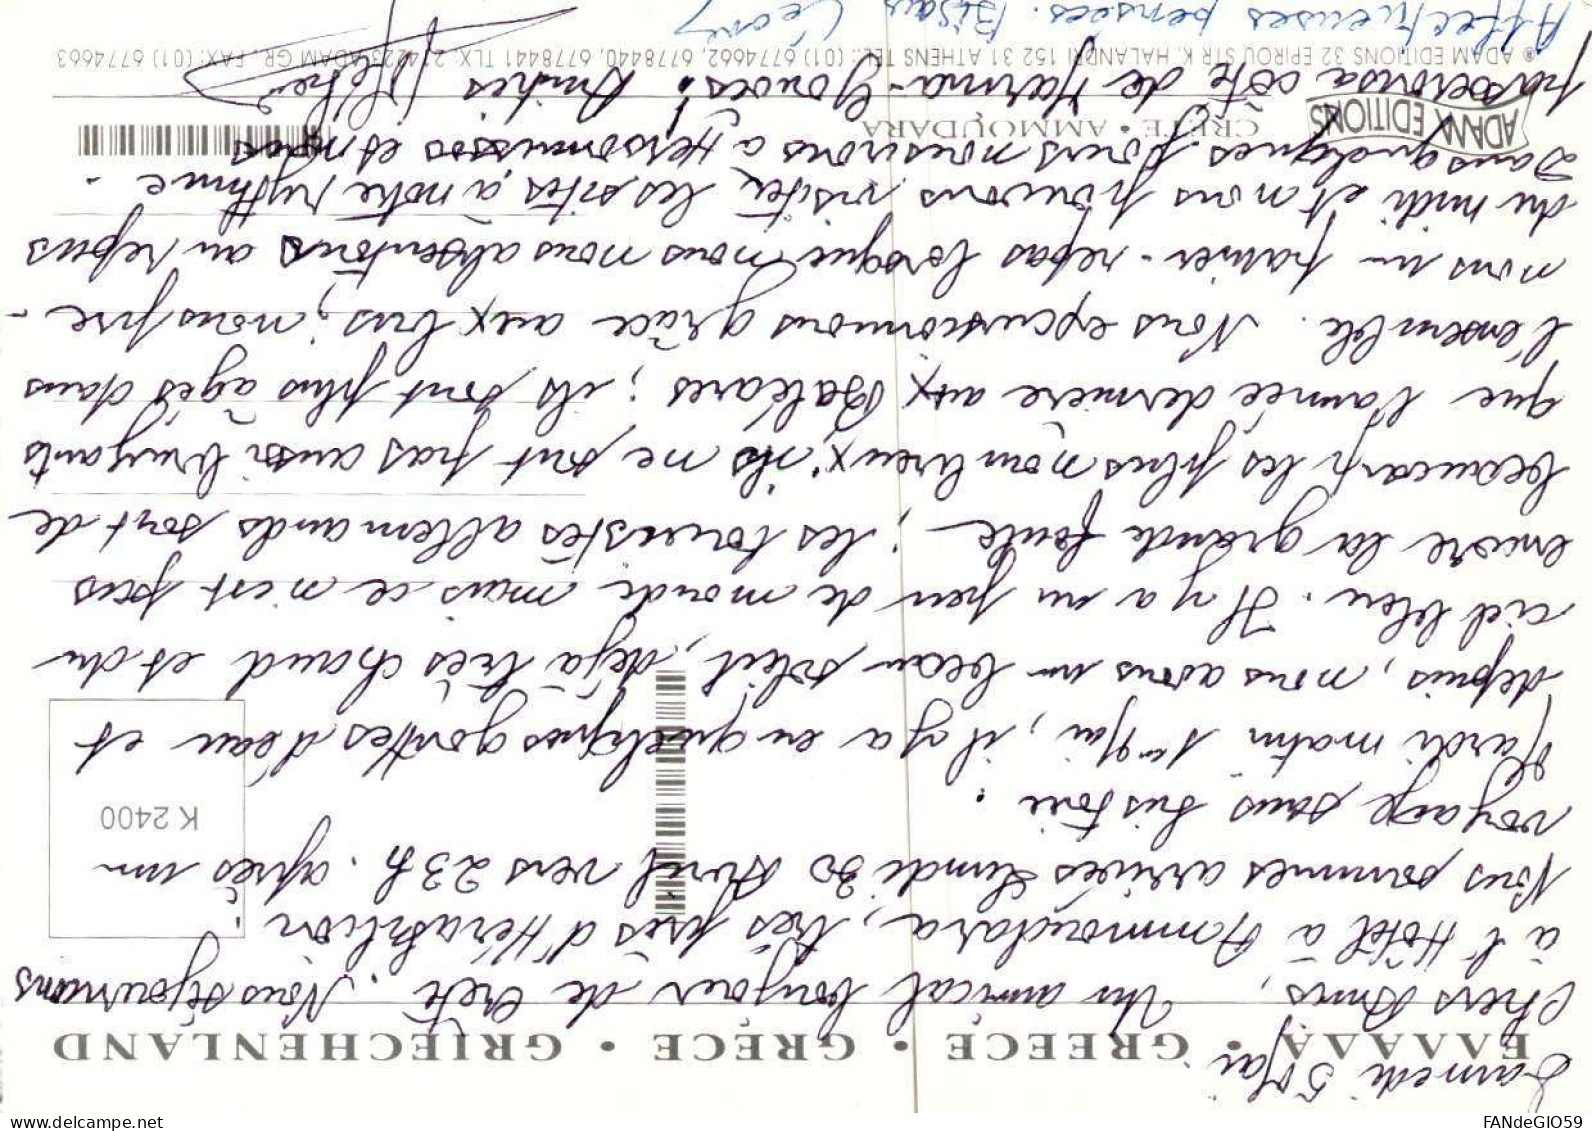 Samedi 5 Mai
ΕΛΛΑΔΑ • GREECE • GRÈCE • GRIECHENLAND
Chers Amis, Un amical bonjour de Crète. Nous séjournons
à l'Hôtel à Ammoudara, très près d'Héraklion.
Nous sommes arrivés Lundi 30 Avril vers 23h. après un
voyage sans histoire.
K 2400
Mardi matin 1er Mai, il y a eu quelques gouttes d'eau et
depuis, nous avons un beau soleil, déjà très chaud et du
ciel bleu. Il y a un peu de monde mais ce n'est pas
encore la grande foule ; les touristes allemands sont de
beaucoup les plus nombreux ; ils ne sont pas aussi bruyants
que l'année dernière aux Baléares ; ils sont plus agés dans
l'ensemble. Nous excursionnons grâce aux bus ; nous pre-
nons un panier-repas lorsque nous nous absentons au repas
du midi et nous pouvons visiter les sites à notre rythme.
Dans quelques jours nous irons à Hersonnissos et
CRETE • AMMOUDARA
ADAM EDITIONS
côte de Gouves! Amitiés
® ADAM EDITIONS 32 EPIROU STR K. HALANDRI 152 31 ATHENS TEL.: (01) 6774662, 6778440, 6778441 TLX: 214223 ADAM GR. FAX: (01) 6774663
Affectueuses pensées. Bisous
FANdeGIO59